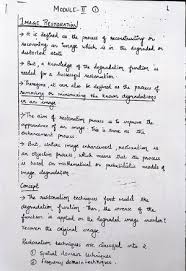 MODULE-II ①
1
IMAGE RESTORATION
→ It is defined as the process of reconstructing or
recovering an image which is in the degraded or
distorted state.
→ But, a knowledge of the degradation function is
needed for a successful restoration.
→ Therefore, it can also be defined as the process of
removing or minimizing the known degradations
in an image
→ The aim of restoration process is to improve the
appearance of an image. This is same as the
enhancement process
→ But, unlike image enhancement, restoration is
an objective process, which means that the process
is based on mathematical or probabilistic models of
image degradation.
Concept
→ The restoration techniques first model the
degradation function. Then, the inverse of the
function is applied on the degraded image
recover the original image.
Restoration techniques are classified into 2
① Spatial domain techniques
② Frequency domain techniques.